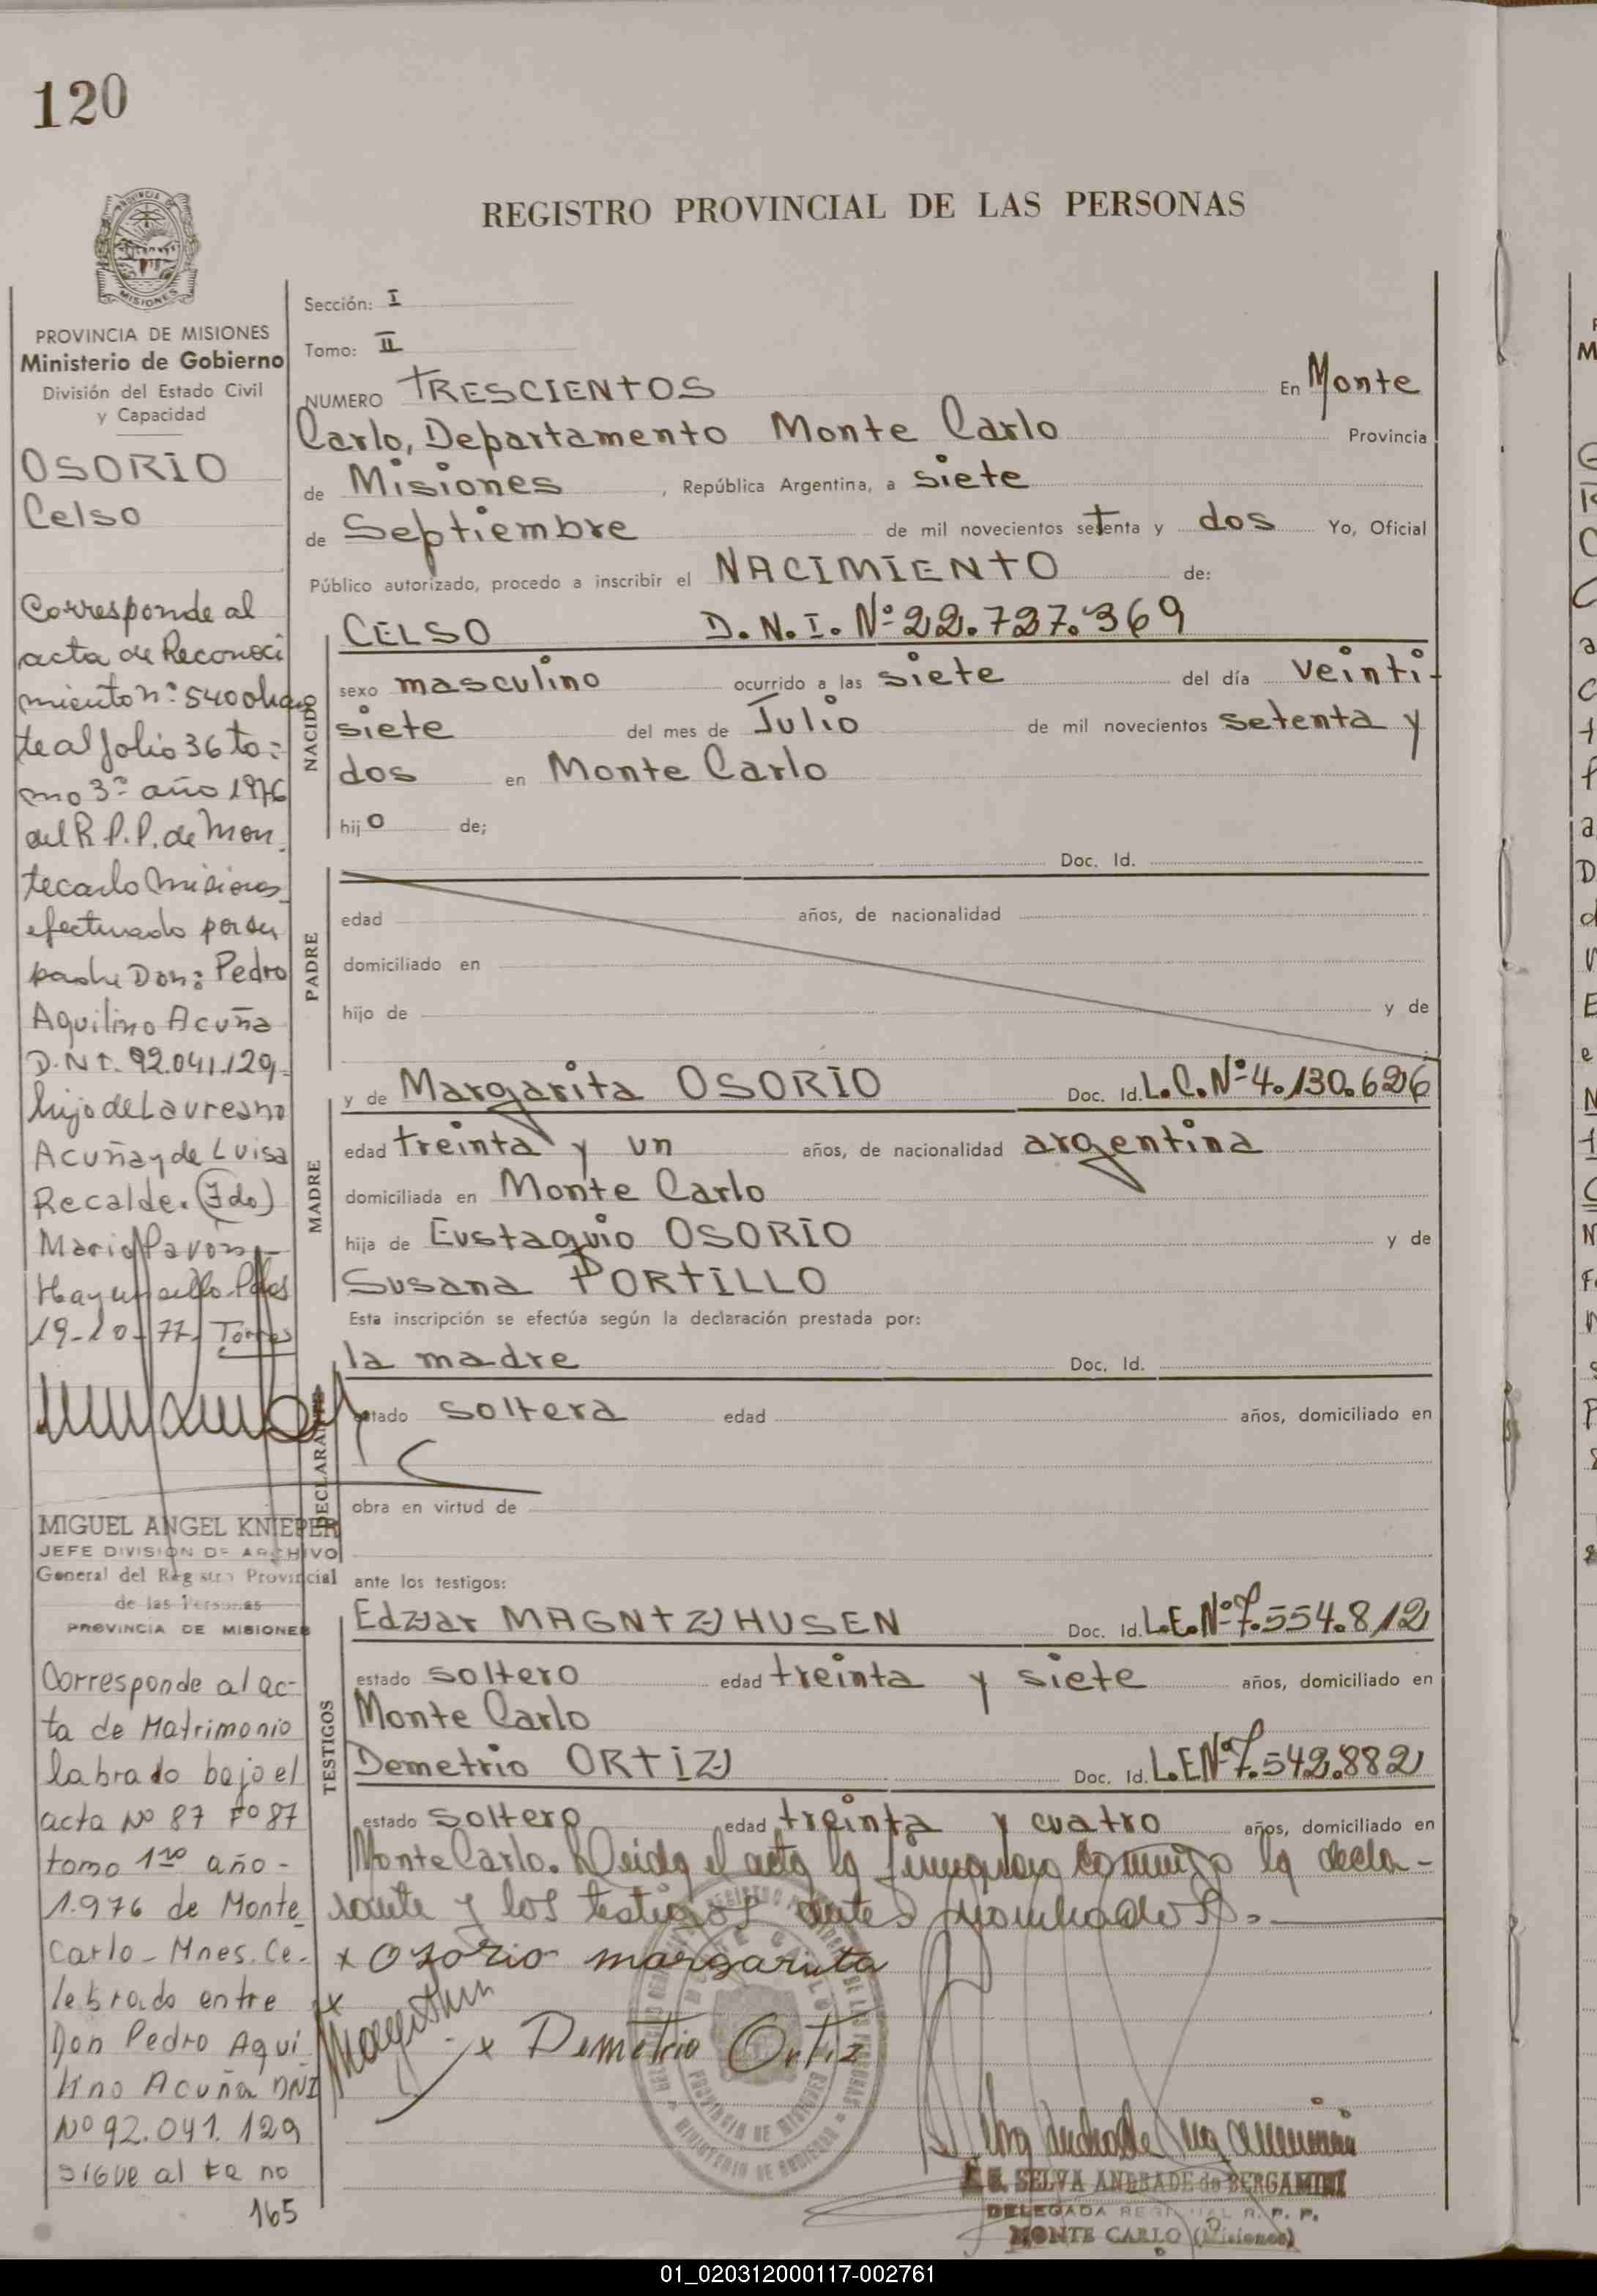 120
REGISTRO PROVINCIAL DE LAS PERSONAS
PROVINCIA DE MISIONES
Ministerio de Gobierno
División del Estado Civil
y Capacidad
OSORIO
Celso
Corresponde al
acta de Reconoci
miento nº 540 obran
te al folio 36 to=
mo 3º año 1976
del R.P.P. de Mon
tecarlo Misiones
efectuado por su
padre Don: Pedro
Aquilino Acuña
D.N.I. 92.041.129
hijo de Laureano
Acuña y de Luisa
Recalde. (Fdo)
Mario Pavón
Hay un sello. Pdas
19-10-77. Torres
MIGUEL ANGEL KNIEPER
JEFE DIVISION DE ARCHIVO
General del Registro Provincial
de las Personas
PROVINCIA DE MISIONES
Corresponde al ac-
ta de Matrimonio
labrado bajo el
acta Nº 87 Fº 87
tomo 1ro año-
1.976 de Monte
Carlo-Mnes. Ce-
lebrado entre
Don Pedro Aqui
lino Acuña DNI
Nº 92.041.129
sigue al fº no
165
Sección: I
Tomo: II
NUMERO TRESCIENTOS En Monte
Carlo, Departamento Monte Carlo Provincia
de Misiones, República Argentina, a siete
de Septiembre de mil novecientos setenta y dos Yo, Oficial
Público autorizado, procedo a inscribir el NACIMIENTO de:
NACIDO
CELSO D.N.I. Nº 22.727.369
sexo masculino ocurrido a las siete del día veinti-
siete del mes de Julio de mil novecientos setenta y
dos en Monte Carlo
hijo de;
PADRE
Doc. Id.
edad años, de nacionalidad
domiciliado en
hijo de y de
MADRE
y de Margarita OSORIO Doc. Id. L.C. Nº 4.130.626
edad treinta y un años, de nacionalidad argentina
domiciliada en Monte Carlo
hija de Eustaquio OSORIO y de
Susana PORTILLO
Esta inscripción se efectúa según la declaración prestada por:
DECLARANTE
la madre Doc. Id.
estado soltera edad años, domiciliado en
obra en virtud de
ante los testigos:
TESTIGOS
Edgar MAGNTZHUSEN Doc. Id. L.E. Nº 7.554.812
estado soltero edad treinta y siete años, domiciliado en
Monte Carlo
Demetrio ORTIZ Doc. Id. L.E Nº 7.542.882
estado soltero edad treinta y cuatro años, domiciliado en
Monte Carlo. Leída el acta la firman conmigo la decla-
rante y los testigos antes nombrados.
x Osorio margarita
x
x Demetrio Ortiz
SELVA ANDRADE de BERGAMINI
DELEGADA REGIONAL R. P. P.
MONTE CARLO (Misiones)
01_020312000117-002761